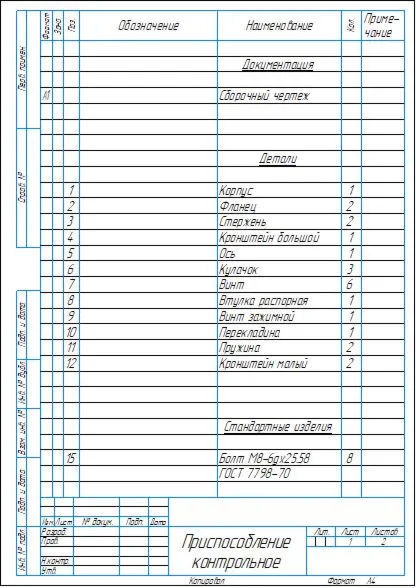 Формат
Зона
Поз.
Обозначение
Наименование
Кол.
Приме-
чание
Перв. примен.
Документация
А1
Сборочный чертеж
Справ. №
Детали
1 Корпус 1
2 Фланец 2
3 Стержень 2
4 Кронштейн большой 1
5 Ось 1
6 Кулачок 3
7 Винт 6
8 Втулка распорная 1
9 Винт зажимной 1
10 Перекладина 1
11 Пружина 2
12 Кронштейн малый 2
Подп. и дата
Инв. № дубл.
Взам. инв. №
Подп. и дата
Инв. № подл.
Стандартные изделия
15 Болт М8-6gх25.58 8
ГОСТ 7798-70
Изм. Лист № докум. Подп. Дата
Разраб.
Пров.
Н.контр.
Утв.
Приспособление
контрольное
Лит. Лист Листов
1 2
Копировал Формат А4